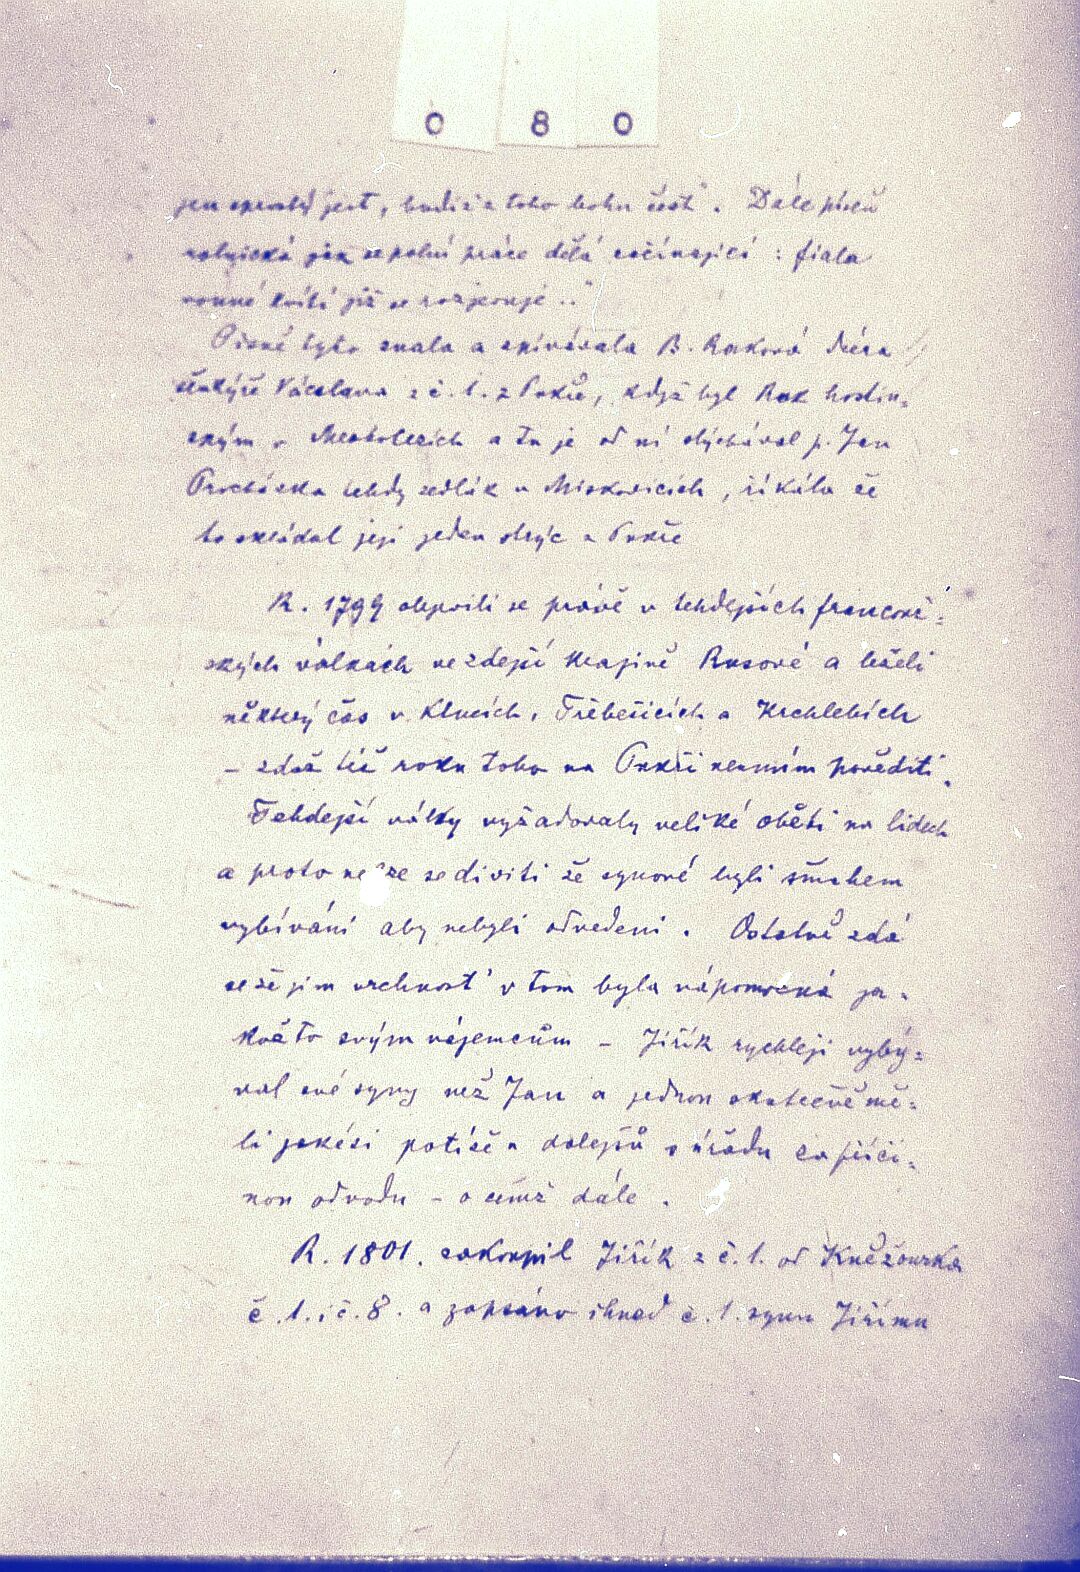 0 8 0
jest, budiž z toho bohu čest". Dále píseň
rolnická jak se polní práce dělá začínající: fiala
vonné kvítí již se rozjeruje .."
Písně tyto znala a zpívávala B. Raková dcera
Václava z č. 1. z Pukře, když byl Rak hostin-
ským v a tu je od ní slýchával p. Jan
Procházka tehdy sedlák v Miskovicích, říkala že
to skládal její jeden strýc z Pukře
R. 1799 objevili se právě v tehdejších francouz-
ských válkách ve zdejší krajině Rusové a leželi
některý čas v Klucích, Třebešicích a Krchlebích
– zdaž též roku toho na Pukři neumím pověditi.
Tehdejší války vyžadovaly veliké oběti na lidech
a proto nelze se diviti že synové byli šmahem
vybíváni aby nebyli odvedeni. Ostatně zdá
se že jim vrchnost v tom byla nápomocná ja-
kožto svým nájemcům – Jiřík rychleji vybý-
val své syny než Jan a jednou skutečně mě-
li jakési potíže u kolejšů v úřadu za příči-
nou odvodu – o čemž dále.
R. 1801. zakoupil Jiřík z č. 1. od Kněžourka
č. 1. i č. 8. a zapsáno ihned č. 1. synu Jiřímu